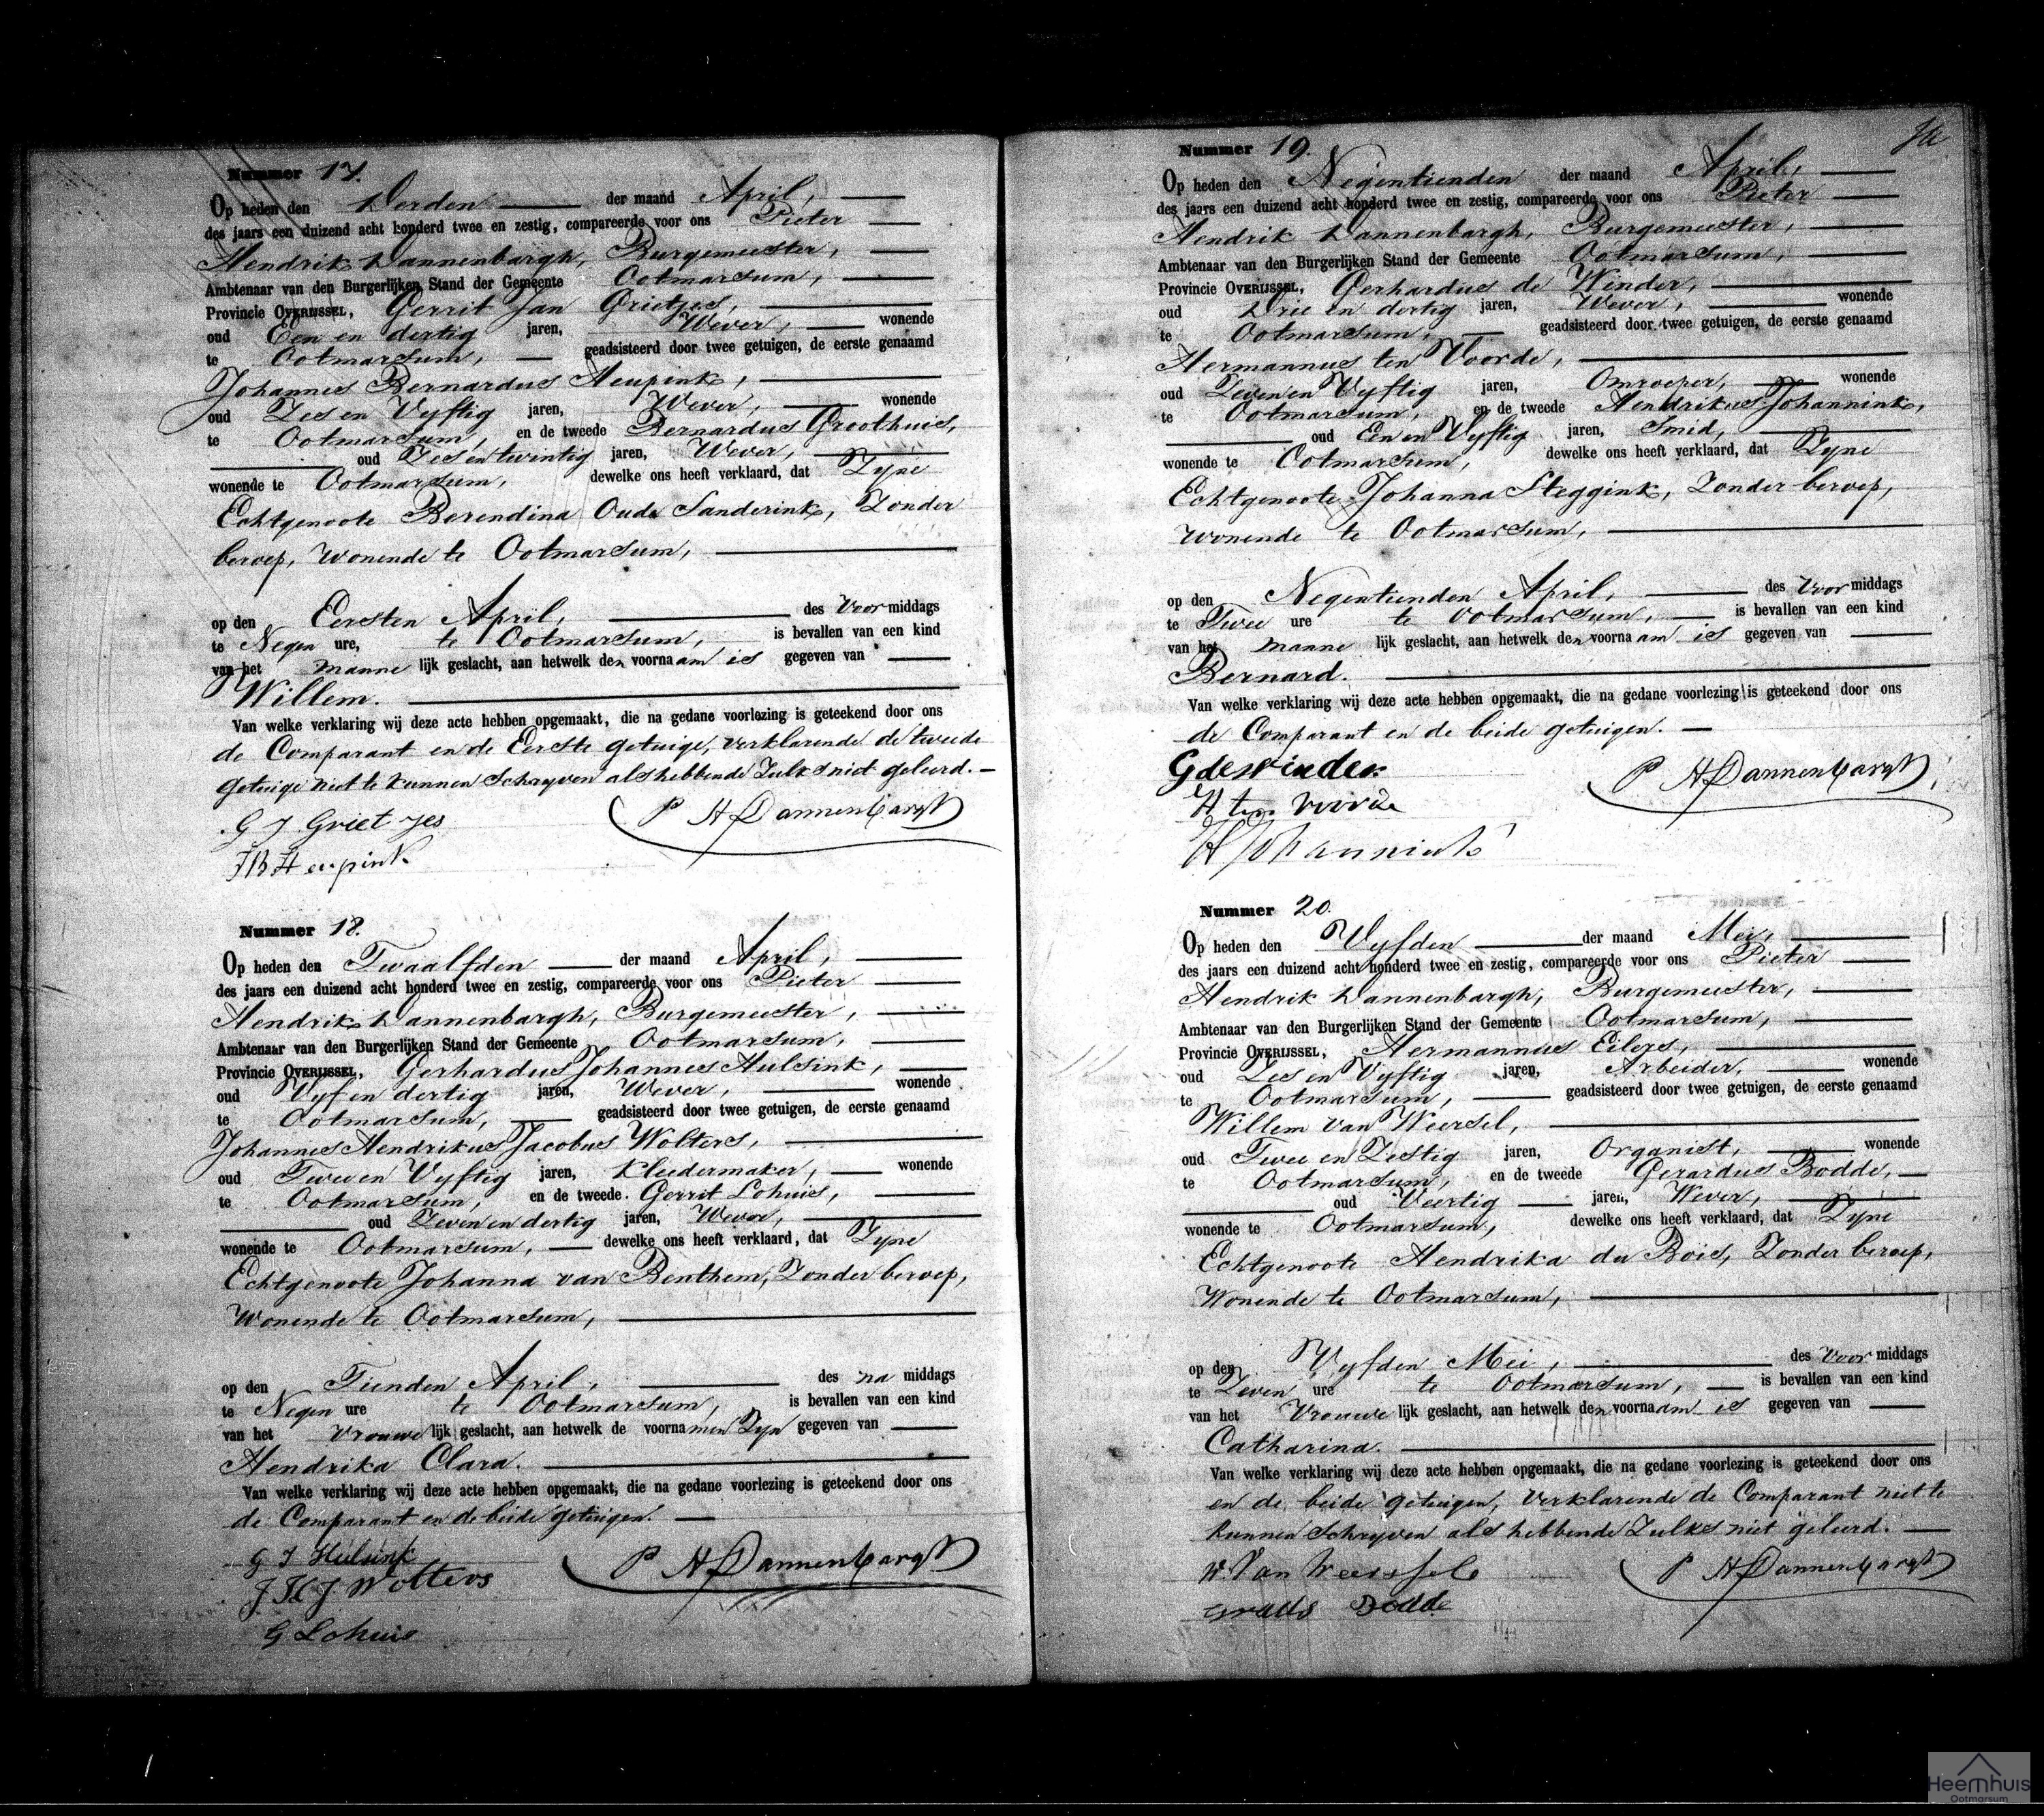 Nummer 17.
Op heden den Derden der maand April,
des jaars een duizend acht honderd twee en zestig, compareerde voor ons Pieter
Hendrik Dannenbargh, Burgemeester,
Ambtenaar van den Burgerlijken Stand der Gemeente Ootmarsum,
Provincie OVERIJSSEL, Gerrit Jan Grietjes,
oud Een en dertig jaren, Wever, wonende
te Ootmarsum, geadsisteerd door twee getuigen, de eerste genaamd
Johannes Bernardus Heupink,
oud Zes en Vyftig jaren, Wever, wonende
te Ootmarsum, en de tweede Bernardus Groothuis,
oud Zes en twintig jaren, Wever,
wonende te Ootmarsum, dewelke ons heeft verklaard, dat Zyne
Echtgenoote Berendina Oude Sanderink, Zonder
beroep, Wonende te Ootmarsum,
op den Eersten April, des Voor middags
te Negen ure, te Ootmarsum, is bevallen van een kind
van het manne lijk geslacht, aan hetwelk den voornaam is gegeven van
Willem.
Van welke verklaring wij deze acte hebben opgemaakt, die na gedane voorlezing is geteekend door ons
de Comparant en de Eerste getuige, verklarende de tweede
getuige niet te kunnen Schryven als hebbende Zulks niet geleerd.
G J Grietjes P H Dannenbargh
JB Heupink
Nummer 18.
Op heden den Twaalfden der maand April,
des jaars een duizend acht honderd twee en zestig, compareerde voor ons Pieter
Hendrik Dannenbargh, Burgemeester,
Ambtenaar van den Burgerlijken Stand der Gemeente Ootmarsum,
Provincie OVERIJSSEL, Gerhardus Johannes Hulsink,
oud Vyf en dertig jaren, Wever, wonende
te Ootmarsum, geadsisteerd door twee getuigen, de eerste genaamd
Johannes Hendrikus Jacobus Wolters,
oud Twee en Vyftig jaren, Kleedermaker, wonende
te Ootmarsum, en de tweede Gerrit Lohuis,
oud Zeven en dertig jaren, Wever,
wonende te Ootmarsum, dewelke ons heeft verklaard, dat Zyne
Echtgenoote Johanna van Benthem, Zonder beroep,
Wonende te Ootmarsum,
op den Tienden April, des na middags
te Negen ure te Ootmarsum, is bevallen van een kind
van het vrouwe lijk geslacht, aan hetwelk de voornamen Zyn gegeven van
Hendrika Clara.
Van welke verklaring wij deze acte hebben opgemaakt, die na gedane voorlezing is geteekend door ons
de Comparant en de beide getuigen.
G J Hulsink P H Dannenbargh
J H J Wolters
G Lohuis
Nummer 19.
Op heden den Negentienden der maand April,
des jaars een duizend acht honderd twee en zestig, compareerde voor ons Pieter
Hendrik Dannenbargh, Burgemeester,
Ambtenaar van den Burgerlijken Stand der Gemeente Ootmarsum,
Provincie OVERIJSSEL, Gerhardus de Winder,
oud Drie en dertig jaren, Wever, wonende
te Ootmarsum, geadsisteerd door twee getuigen, de eerste genaamd
Hermannus ten Voorde,
oud Zeven en Vyftig jaren, Omroeper, wonende
te Ootmarsum, en de tweede Hendrikus Johannink,
oud Een en Vyftig jaren, Smid,
wonende te Ootmarsum, dewelke ons heeft verklaard, dat Zyne
Echtgenoote Johanna Steggink, Zonder beroep,
Wonende te Ootmarsum,
op den Negentienden April, des Voor middags
te Twee ure te Ootmarsum, is bevallen van een kind
van het manne lijk geslacht, aan hetwelk den voornaam is gegeven van
Bernard.
Van welke verklaring wij deze acte hebben opgemaakt, die na gedane voorlezing is geteekend door ons
de Comparant en de beide getuigen.
G de Winder P H Dannenbargh
H ten voorde
H Johannink
Nummer 20.
Op heden den Vyfden der maand Mei,
des jaars een duizend acht honderd twee en zestig, compareerde voor ons Pieter
Hendrik Dannenbargh, Burgemeester,
Ambtenaar van den Burgerlijken Stand der Gemeente Ootmarsum,
Provincie OVERIJSSEL, Hermannus Eilers,
oud Zes en Vyftig jaren, Arbeider, wonende
te Ootmarsum, geadsisteerd door twee getuigen, de eerste genaamd
Willem van Weersel,
oud Twee en Zestig jaren, Organist, wonende
te Ootmarsum, en de tweede Gerardus Bodde,
oud Veertig jaren, Wever,
wonende te Ootmarsum, dewelke ons heeft verklaard, dat Zyne
Echtgenoote Hendrika du Bois, Zonder beroep,
Wonende te Ootmarsum,
op den Vyfden Mei, des Voor middags
te Zeven ure te Ootmarsum, is bevallen van een kind
van het Vrouwe lijk geslacht, aan hetwelk den voornaam is gegeven van
Catharina.
Van welke verklaring wij deze acte hebben opgemaakt, die na gedane voorlezing is geteekend door ons
en de beide getuigen, Verklarende de Comparant niet te
kunnen Schryven als hebbende Zulks niet geleerd.
W. Van Weersel P H Dannenbargh
Bodde
Heemhuis
Ootmarsum